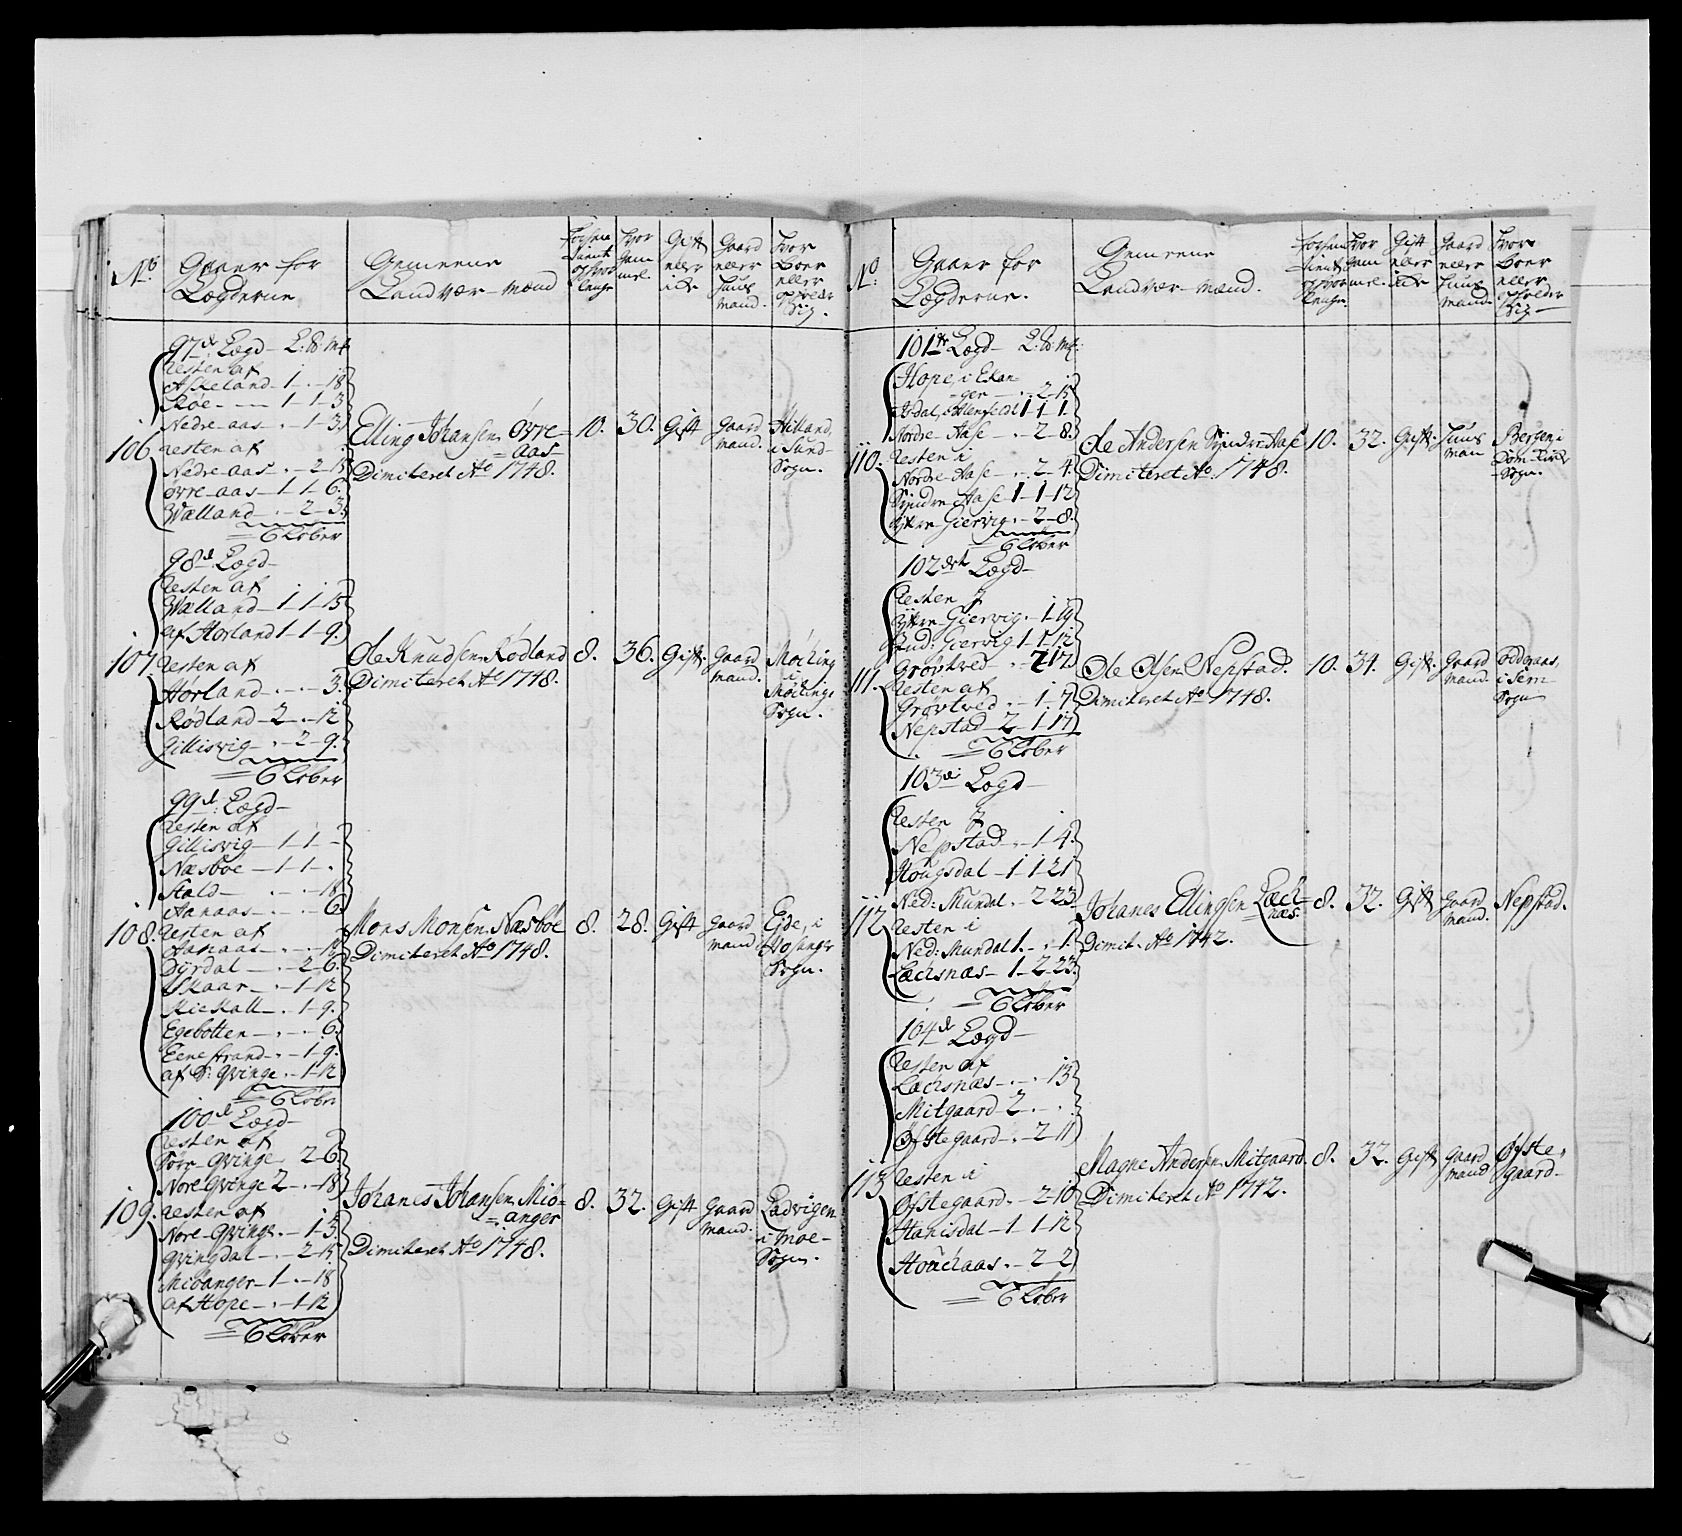 No
Gaaer for
Lægderne
Gemeene
Landvær-mænd
hvor
gam
mel
Gift
eller
icke
Gaard
eller
Huus
mand.
Hvor
Boer
eller
opholder
Sig.
97de Lægd — L: ß: mk
Resten af
Askeland — 1 — . — 18
Røe — 1 — 1 — 3
Nedre aas — . — 1 — 3
106.
resten af
Nedre-aas — . — 2 — 15
øvre-aas — 1 — 1 — 6.
Vælland — . — 2 — 3.
= 6 Løber
Elling Johansen Øvre-
=aas
Dimiteret Ao 1748.
10.
30.
Gift
gaard
mand.
Hilland,
i Sund
Sogn.
98de Lægd —
Resten af
Vælland — 1 — 1 — 15
af Horland 1 — 1 — 9.
107.
resten af
Hørland — . — . — 3.
Rødland — 2 — . — 12
Gillisvig — . — 2 — 9.
= 6 Løber
Ole Knudsen Rødland
Dimiteret Ao 1748.
8.
36.
Gift.
gaard
mand.
Møching
i
Møchings
Sogn.
99de Lægd —
Resten af
Gillisvig — 1 — 1 —
Næsbøe — 1 — 1 — .
Stald — . — . — 18
Aanaas — . — . — 6
108.
resten af
Aanaas — . — . — 18
Dyrdal — . — 2 — 6.
Skaar — . — 1 — 12
Mickall — . 1 — 9.
Egebotten — . — . — 6.
Eenestrand — . — 1 — 9.
af S: Qvinge . — 1 — 12
= 6 Løber
Mons Monsen Næsbøe
Dimiteret Ao 1748.
8.
28.
Gift
gaard
mand
Eide, i
Hosanger
Sogn.
100de Lægd —
resten af
Sørr-Qvinge 2 — 6.
Nore Qvinge 2 — . — 18
109.
resten af
Nore-Qvinge . — 1 — 3.
Qvingdal — . — 2 — 15
Mioanger — 1 — . — 18
af Hope — . — 1 — 12
= 6 Løber
Johanes Johansen Mio-
=anger
Dimiteret Ao 1748.
8.
32.
Gift
gaard
mand.
Ladvigen
i Moe-
Sogn.
No
Gaaer for
Lægderne.
Gemeene
Landvær-mænd.
Hvor
gam
mel.
Gift
eller
icke
Gaard
eller
Huus
mand.
Hvor
Boer
eller
opholder
Sig
101te Lægd — L: ß: mk:
Hope, i Exan-
ger — . — 2 — 15
Nordre-Aase — . — 2 — 8.
110.
resten i
Nordre-Aase — . — 2 — 4.
Syndre Aase 1 — 1 — 12
Yttre Giervig . — 2 — 8.
= 6 Løber
Ole Andersen Syndre Aase
Dimiteret Ao 1748.
10.
32.
Gift.
Huus
man
Bergen i
Dom-Kirke
Sogn.
102den Lægd —
resten i
Yttre Giervig . — 1 — 19
Ind: Giervig 1 — 1 — 12
Grøvtved . — 2 — 17
111.
Resten af
Grøvtved . — 1 — 7
Nepstad — 2 — 1 — 17
= 6 Løber
Ole Olsen Nepstad.
Dimiteret Ao 1748.
10.
34.
Gift.
gaard
mand.
Oddraas,
i Sem-
Sogn
103de Lægd —
Resten i
Nepstad — . — 1 — 4.
Hougsdal — 1 — 1 — 21
Ned: Mundal . — 2 — 23
112.
resten i
Ned: Mundal 1 — . — 1.
Lachsnæs — 1 — 2 — 23.
= 6 Løber
Johanes Ellingsen Lach-
næs.
Dimit. Ao 1742.
8.
32.
Gift
gaard
mand.
Nepstad.
104de Lægd —
Resten af
Lachsnæs — . — . — 13
Mitgaard — 2 — . — .
Øfstegaard — . — 2 — 11
113.
resten i
Øfstegaard . — 2 — 10
Stanisdal — 1 — 1 — 12
Houchaas . — 2 — 2
= 6 Løber
Magne Andersen Mitgaard.
Dimiteret Ao 1742.
8.
32.
Gift
gaard
mand
Øfste-
gaard-